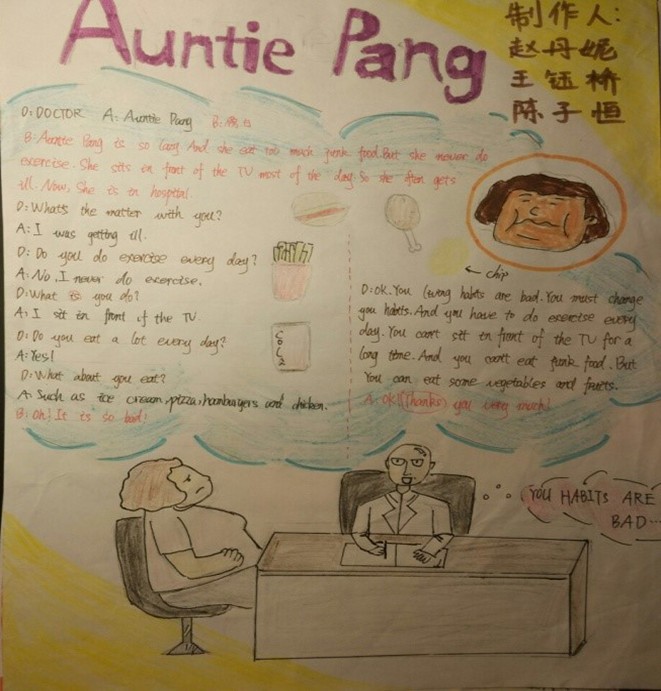 Auntie Pang
制作人:
赵丹妮
王钰桥
陈子恒
D: DOCTOR A: Auntie Pang B: 旁白
B: Auntie Pang is so lazy And she eat too much junk food. But she never do
exercise. She sits in front of the TV most of the day So she often gets
ill. Now, She is in hospital.
D: What's the matter with you?
A: I was getting ill.
D: Do you do exercise every day?
A: No, I never do exercise.
D: What is you do?
A: I sit in front if the TV.
D: Do you eat a lot every day?
A: Yes!
D: What about you eat?
A: Such as ice cream, pizza, hamburgers and chicken.
B: Oh! It is so bad!
COLA
← chip
D: OK. You living habits are bad. You must change
you habits. And you have to do exercise every
day. You can't sit in front of the TV for a
long time. And you can't eat junk food. But
You can eat some vegetables and fruits.
A: OK! (Thanks) you very much!
YOU HABITS ARE
BAD...